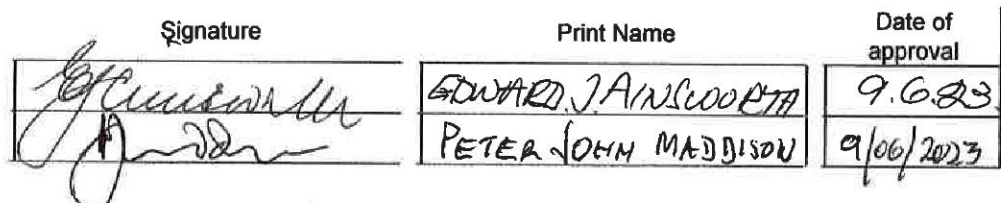 Signature Print Name Date of
approval
EDWARD. J AINSWORTH 9.6.23
PETER JOHN MADDISON 9/06/2023